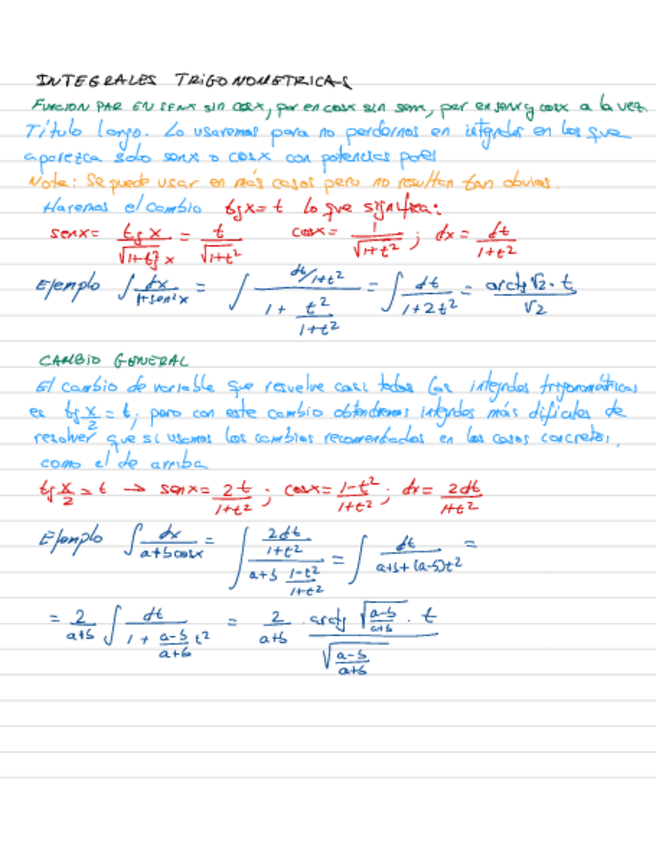 INTEGRALES TRIGONOMETRICAS
FUNCION PAR EN SENX sin cosx, par en cosx sin senx, par en senx y cosx a la vez
Título largo. Lo usaremos para no perdernos en integrales en las que
aparezca solo senx o cosx con potencias pares
Nota: Se puede usar en más casos pero no resultan tan obvios.
Haremos el cambio tg x = t lo que significa:
senx = tg x / √(1+tg² x) = t / √(1+t²) cosx = 1 / √(1+t²) ; dx = dt / (1+t²)
Ejemplo ∫ dx / (1+sen²x) = ∫ (dt/1+t²) / (1 + t²/(1+t²)) = ∫ dt / (1+2t²) = arctg √2 · t / √2
CAMBIO GENERAL
El cambio de variable que resuelve casi todas las integrales trigonométricas
es tg x/2 = t, pero con este cambio obtendremos integrales más difíciles de
resolver que si usamos los cambios recomendados en los casos concretos,
como el de arriba
tg x/2 = t → senx = 2t / (1+t²) ; cosx = (1-t²) / (1+t²) ; dx = 2dt / (1+t²)
Ejemplo ∫ dx / (a+b cosx) = ∫ (2dt / (1+t²)) / (a+b (1-t²)/(1+t²)) = ∫ dt / (a+b+(a-b)t²) =
= 2/(a+b) ∫ dt / (1 + (a-b)/(a+b) t²) = 2/(a+b) · arctg √((a-b)/(a+b)) · t / √((a-b)/(a+b))